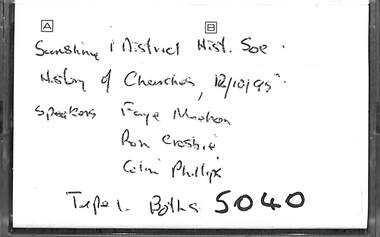 A B
Sunshine & District Hist. Soc.
History of Churches, 12/10/95
Speakers Faye
Ron
Colin Phillips
Tape 1. 5040